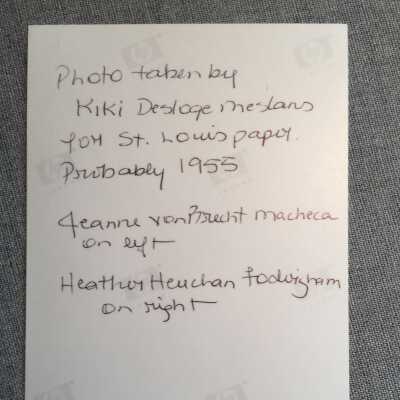 Photo taken by
Kiki Desloge Meslans
for St. Louis paper.
Probably 1955
Jeanne vonBrecht Macheca
on left
Heather Heuchan
on right